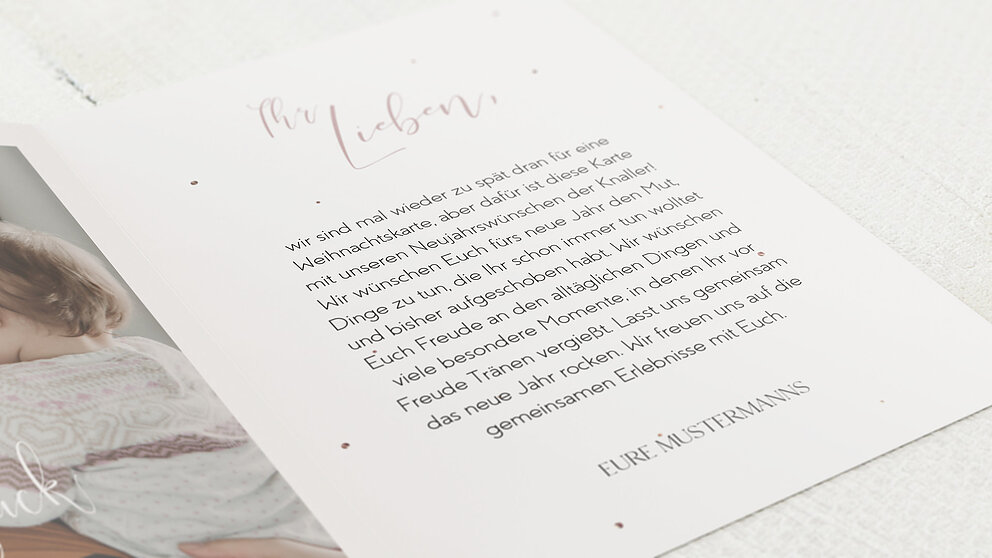 Ihr Lieben,
wir sind mal wieder zu spät dran für eine
Weihnachtskarte, aber dafür ist diese Karte
mit unseren Neujahrswünschen der Knaller!
Wir wünschen Euch fürs neue Jahr den Mut,
Dinge zu tun, die Ihr schon immer tun wolltet
und bisher aufgeschoben habt. Wir wünschen
Euch Freude an den alltäglichen Dingen und
viele besondere Momente, in denen Ihr vor
Freude Tränen vergießt. Lasst uns gemeinsam
das neue Jahr rocken. Wir freuen uns auf die
gemeinsamen Erlebnisse mit Euch.
EURE MUSTERMANNS